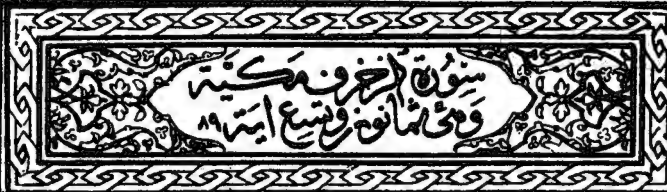 سورة الزخرف مكية
وهي ثمانون وتسع اية ٨٩